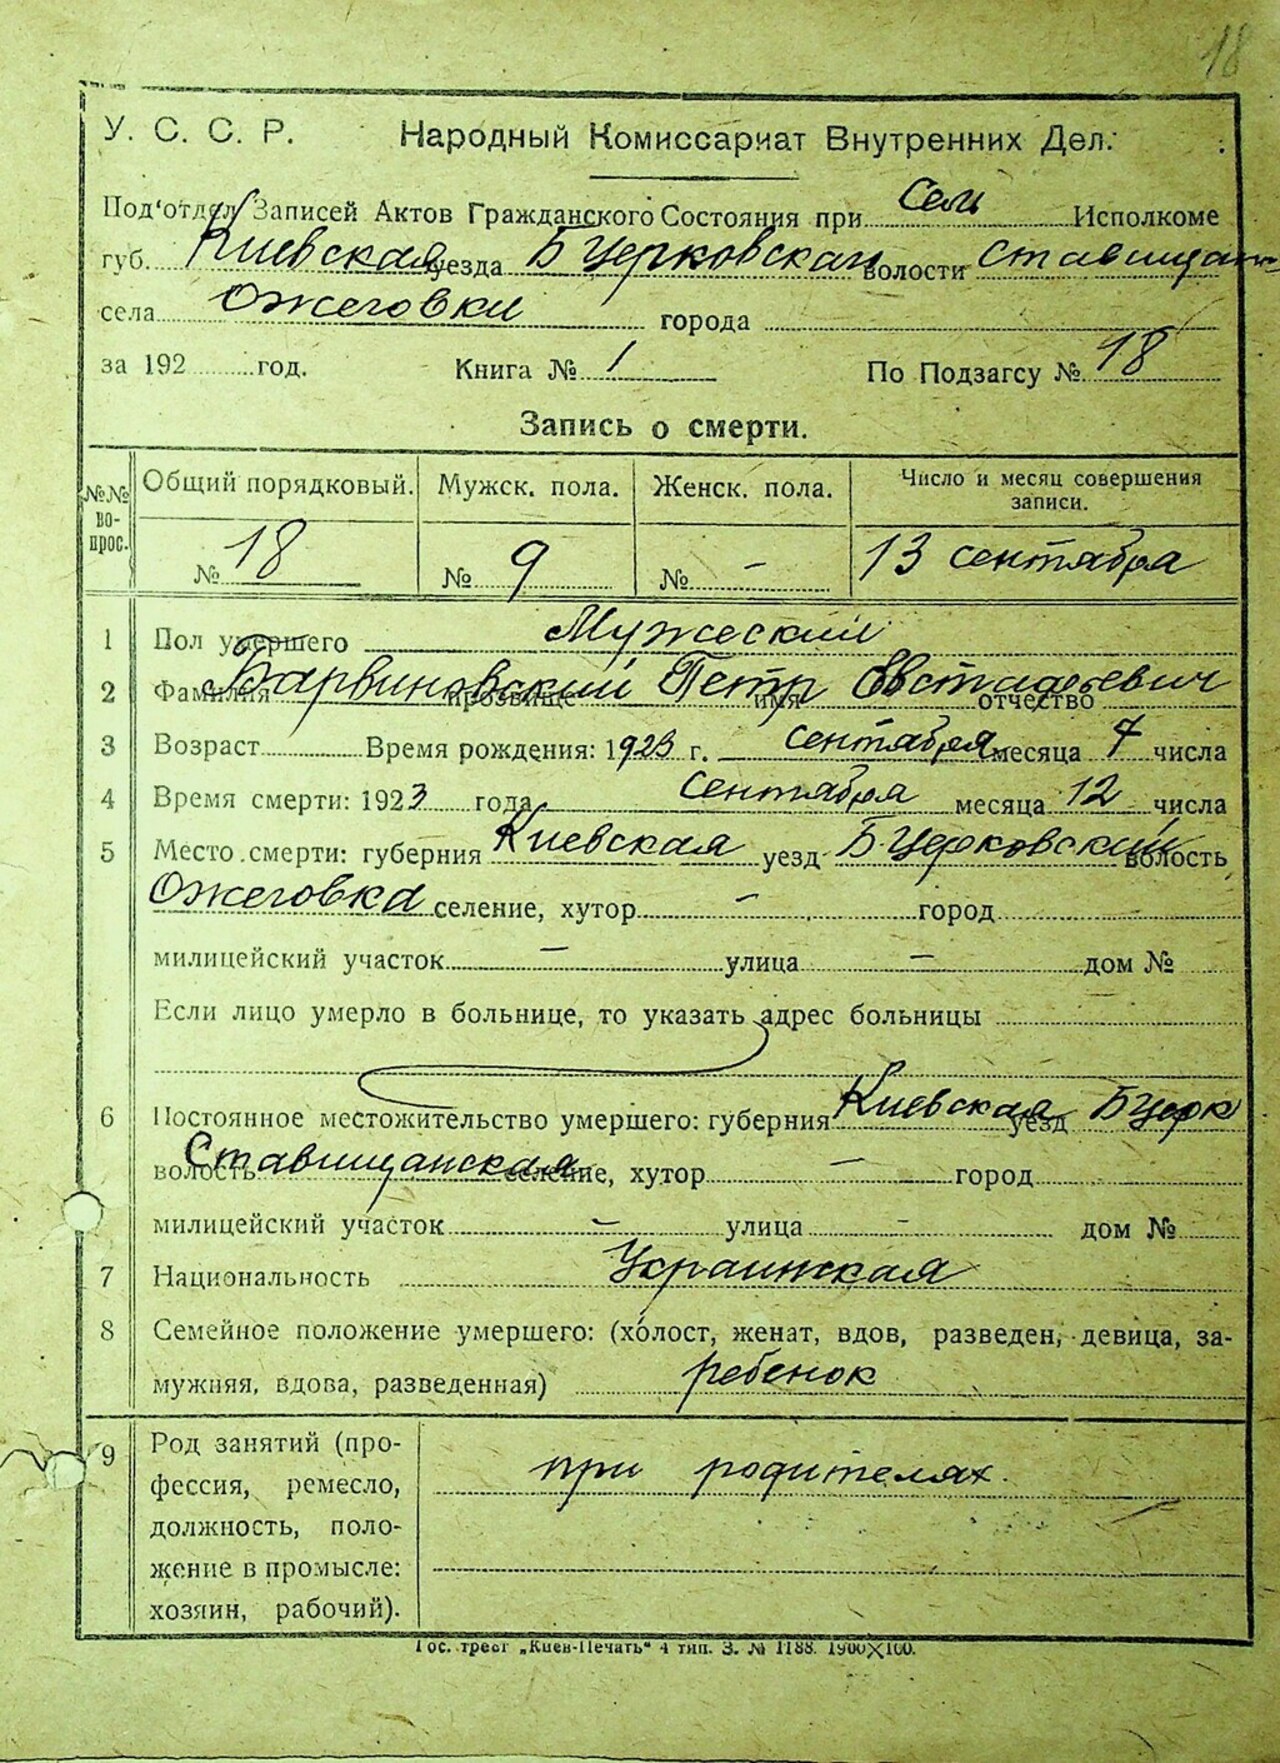 18
У. С. С. Р. Народный Комиссариат Внутренних Дел.
Под'отдел Записей Актов Гражданского Состояния при Сель Исполкоме
губ. Киевская уезда Б Церковская волости Ставищан
села Ожеговки города
за 192 год. Книга № 1 По Подзагсу № 18
Запись о смерти.
№№ вопрос. Общий порядковый. Мужск. пола. Женск. пола. Число и месяц совершения записи.
№ 18 № 9 № - 13 сентября
1 Пол умершего Мужеский
2 Фамилия Барвиновский прозвище имя Петр отчество Евстафьевич
3 Возраст Время рождения: 1923 г. сентября месяца 7 числа
4 Время смерти: 1923 года сентября месяца 12 числа
5 Место смерти: губерния Киевская уезд Б. Церковский волость
Ожеговка селение, хутор - город
милицейский участок - улица - дом №
Если лицо умерло в больнице, то указать адрес больницы
6 Постоянное местожительство умершего: губерния Киевская уезд БЦерк
волость Ставищанская селение, хутор - город
милицейский участок - улица - дом №
7 Национальность Украинская
8 Семейное положение умершего: (холост, женат, вдов, разведен, девица, за-
мужняя, вдова, разведенная) ребенок
9 Род занятий (про-
фессия, ремесло,
должность, поло-
жение в промысле:
хозяин, рабочий).
при родителях.
Гос. трест „Киев-Печать" 4 тип. З. № 1188. 1900×100.